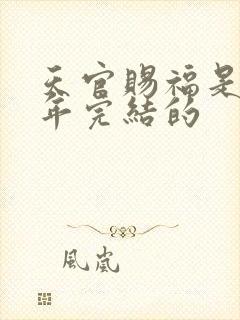 天官賜福是
年完結的
風嵐